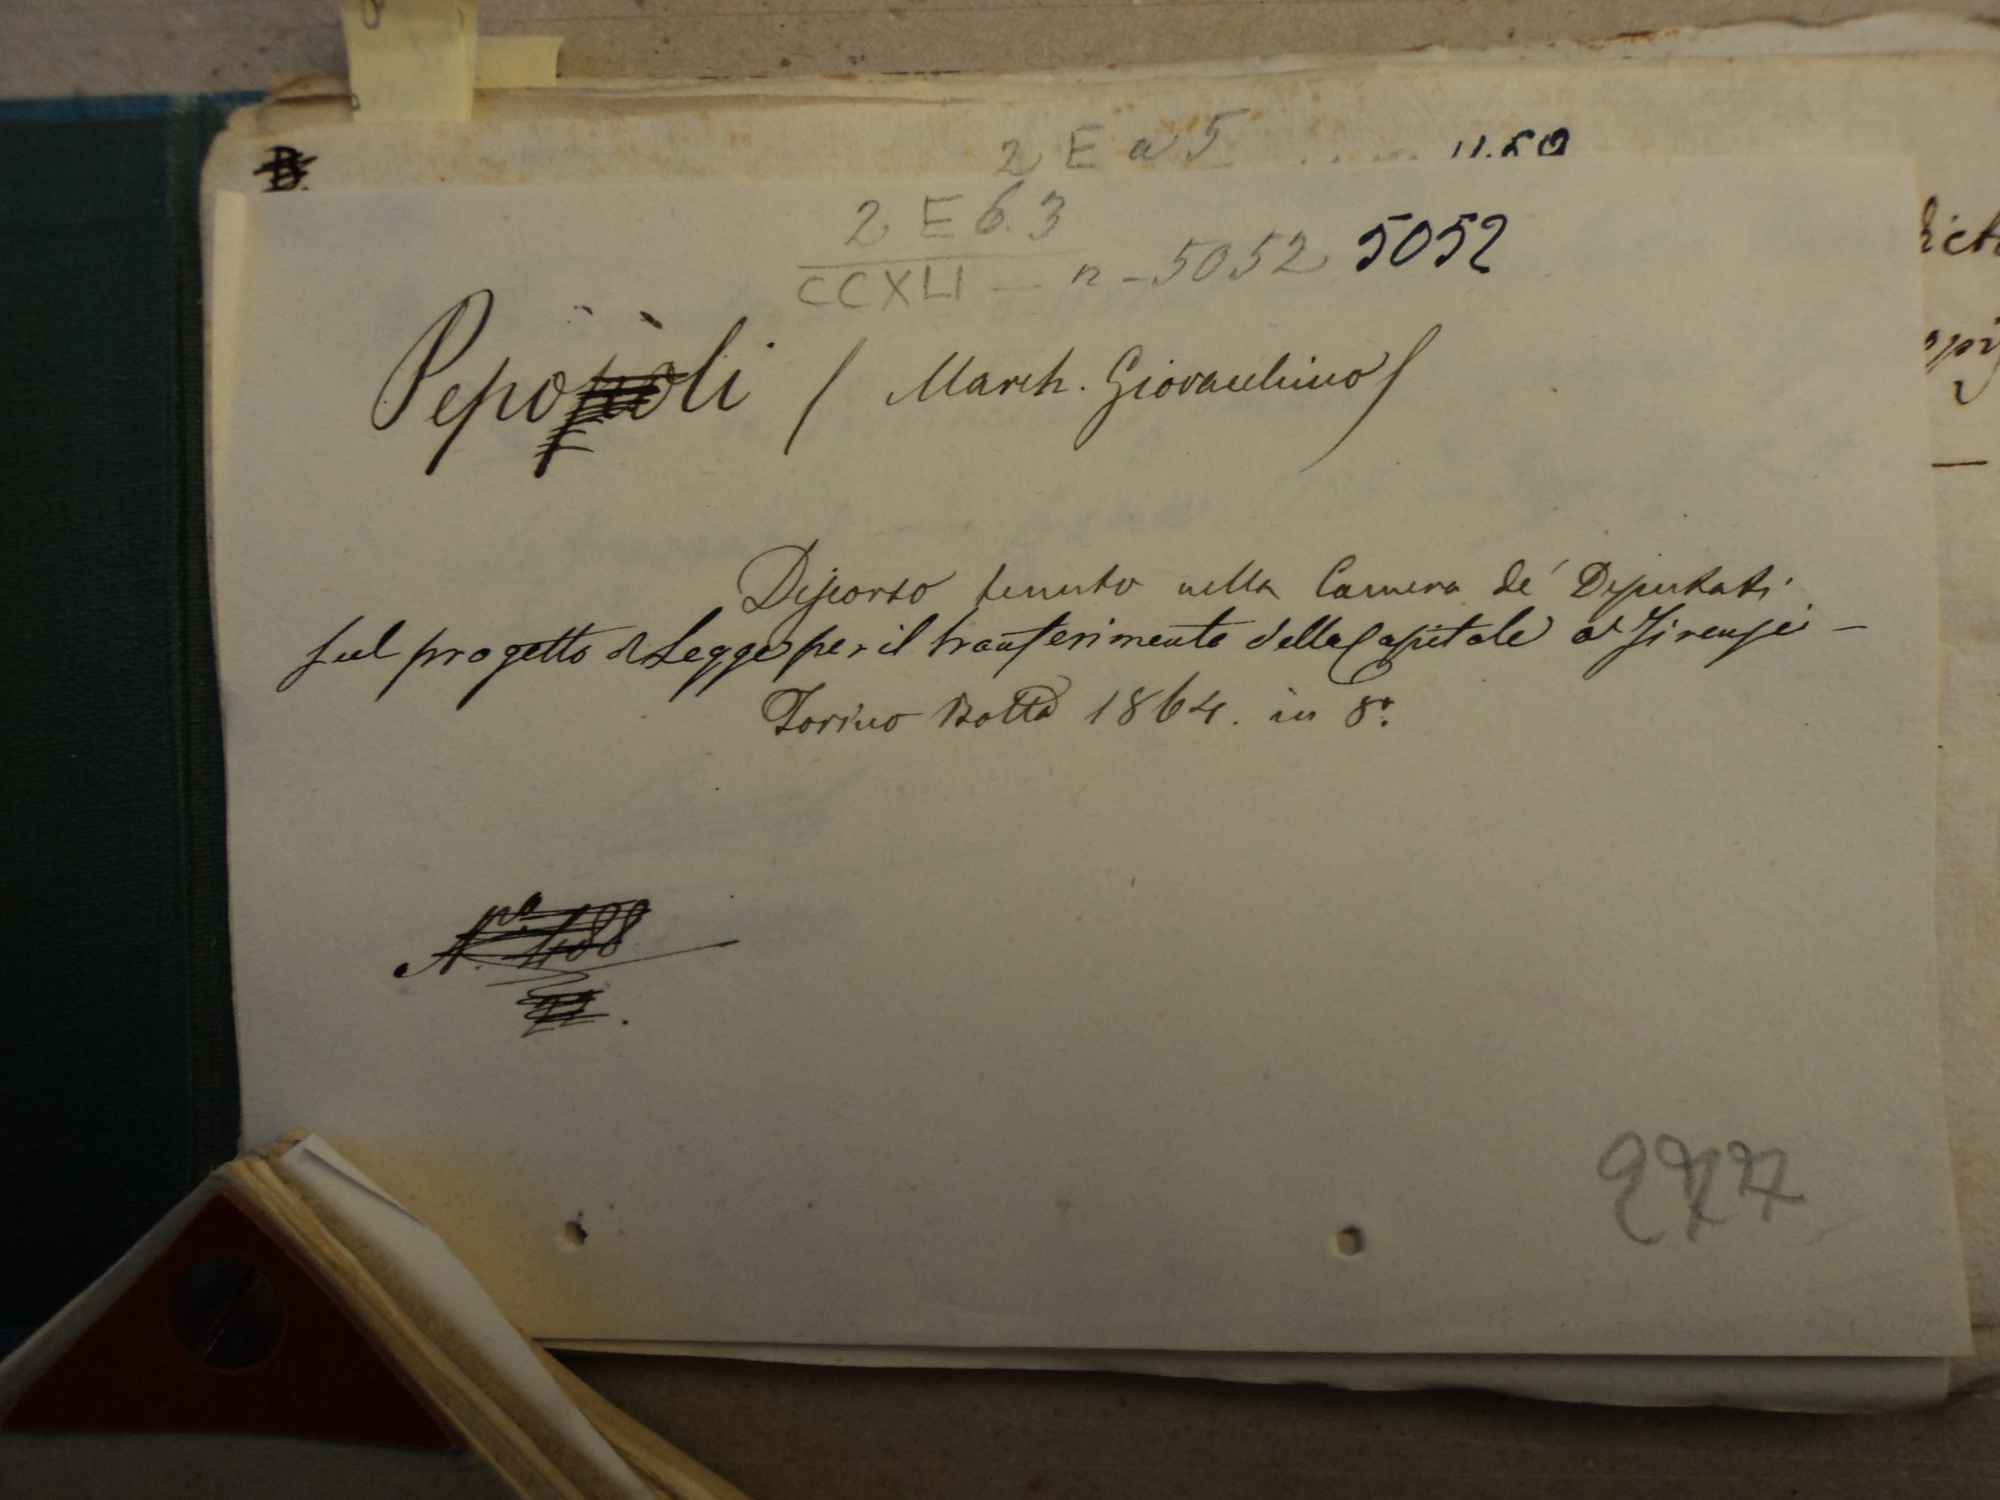 B.
2 E a 5
2 E 6.3
CCXLI — n - 5052 5052
Pepoli (March. Giovacchino)
Discorso tenuto nella Camera de' Deputati
sul progetto di Legge per il trasferimento della Capitale a Firenze —
Torino Botta 1864. in 8º.
Nº. 488